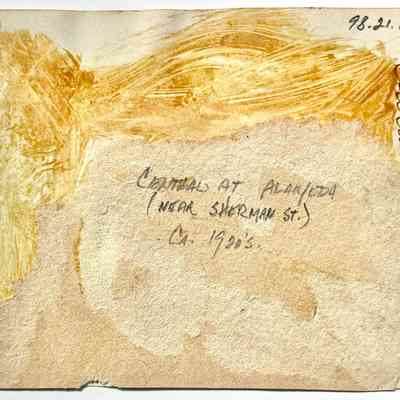 98.21.
CENTRAL AT ALAMEDA
(NEAR SHERMAN ST.)
CA. 1920'S.